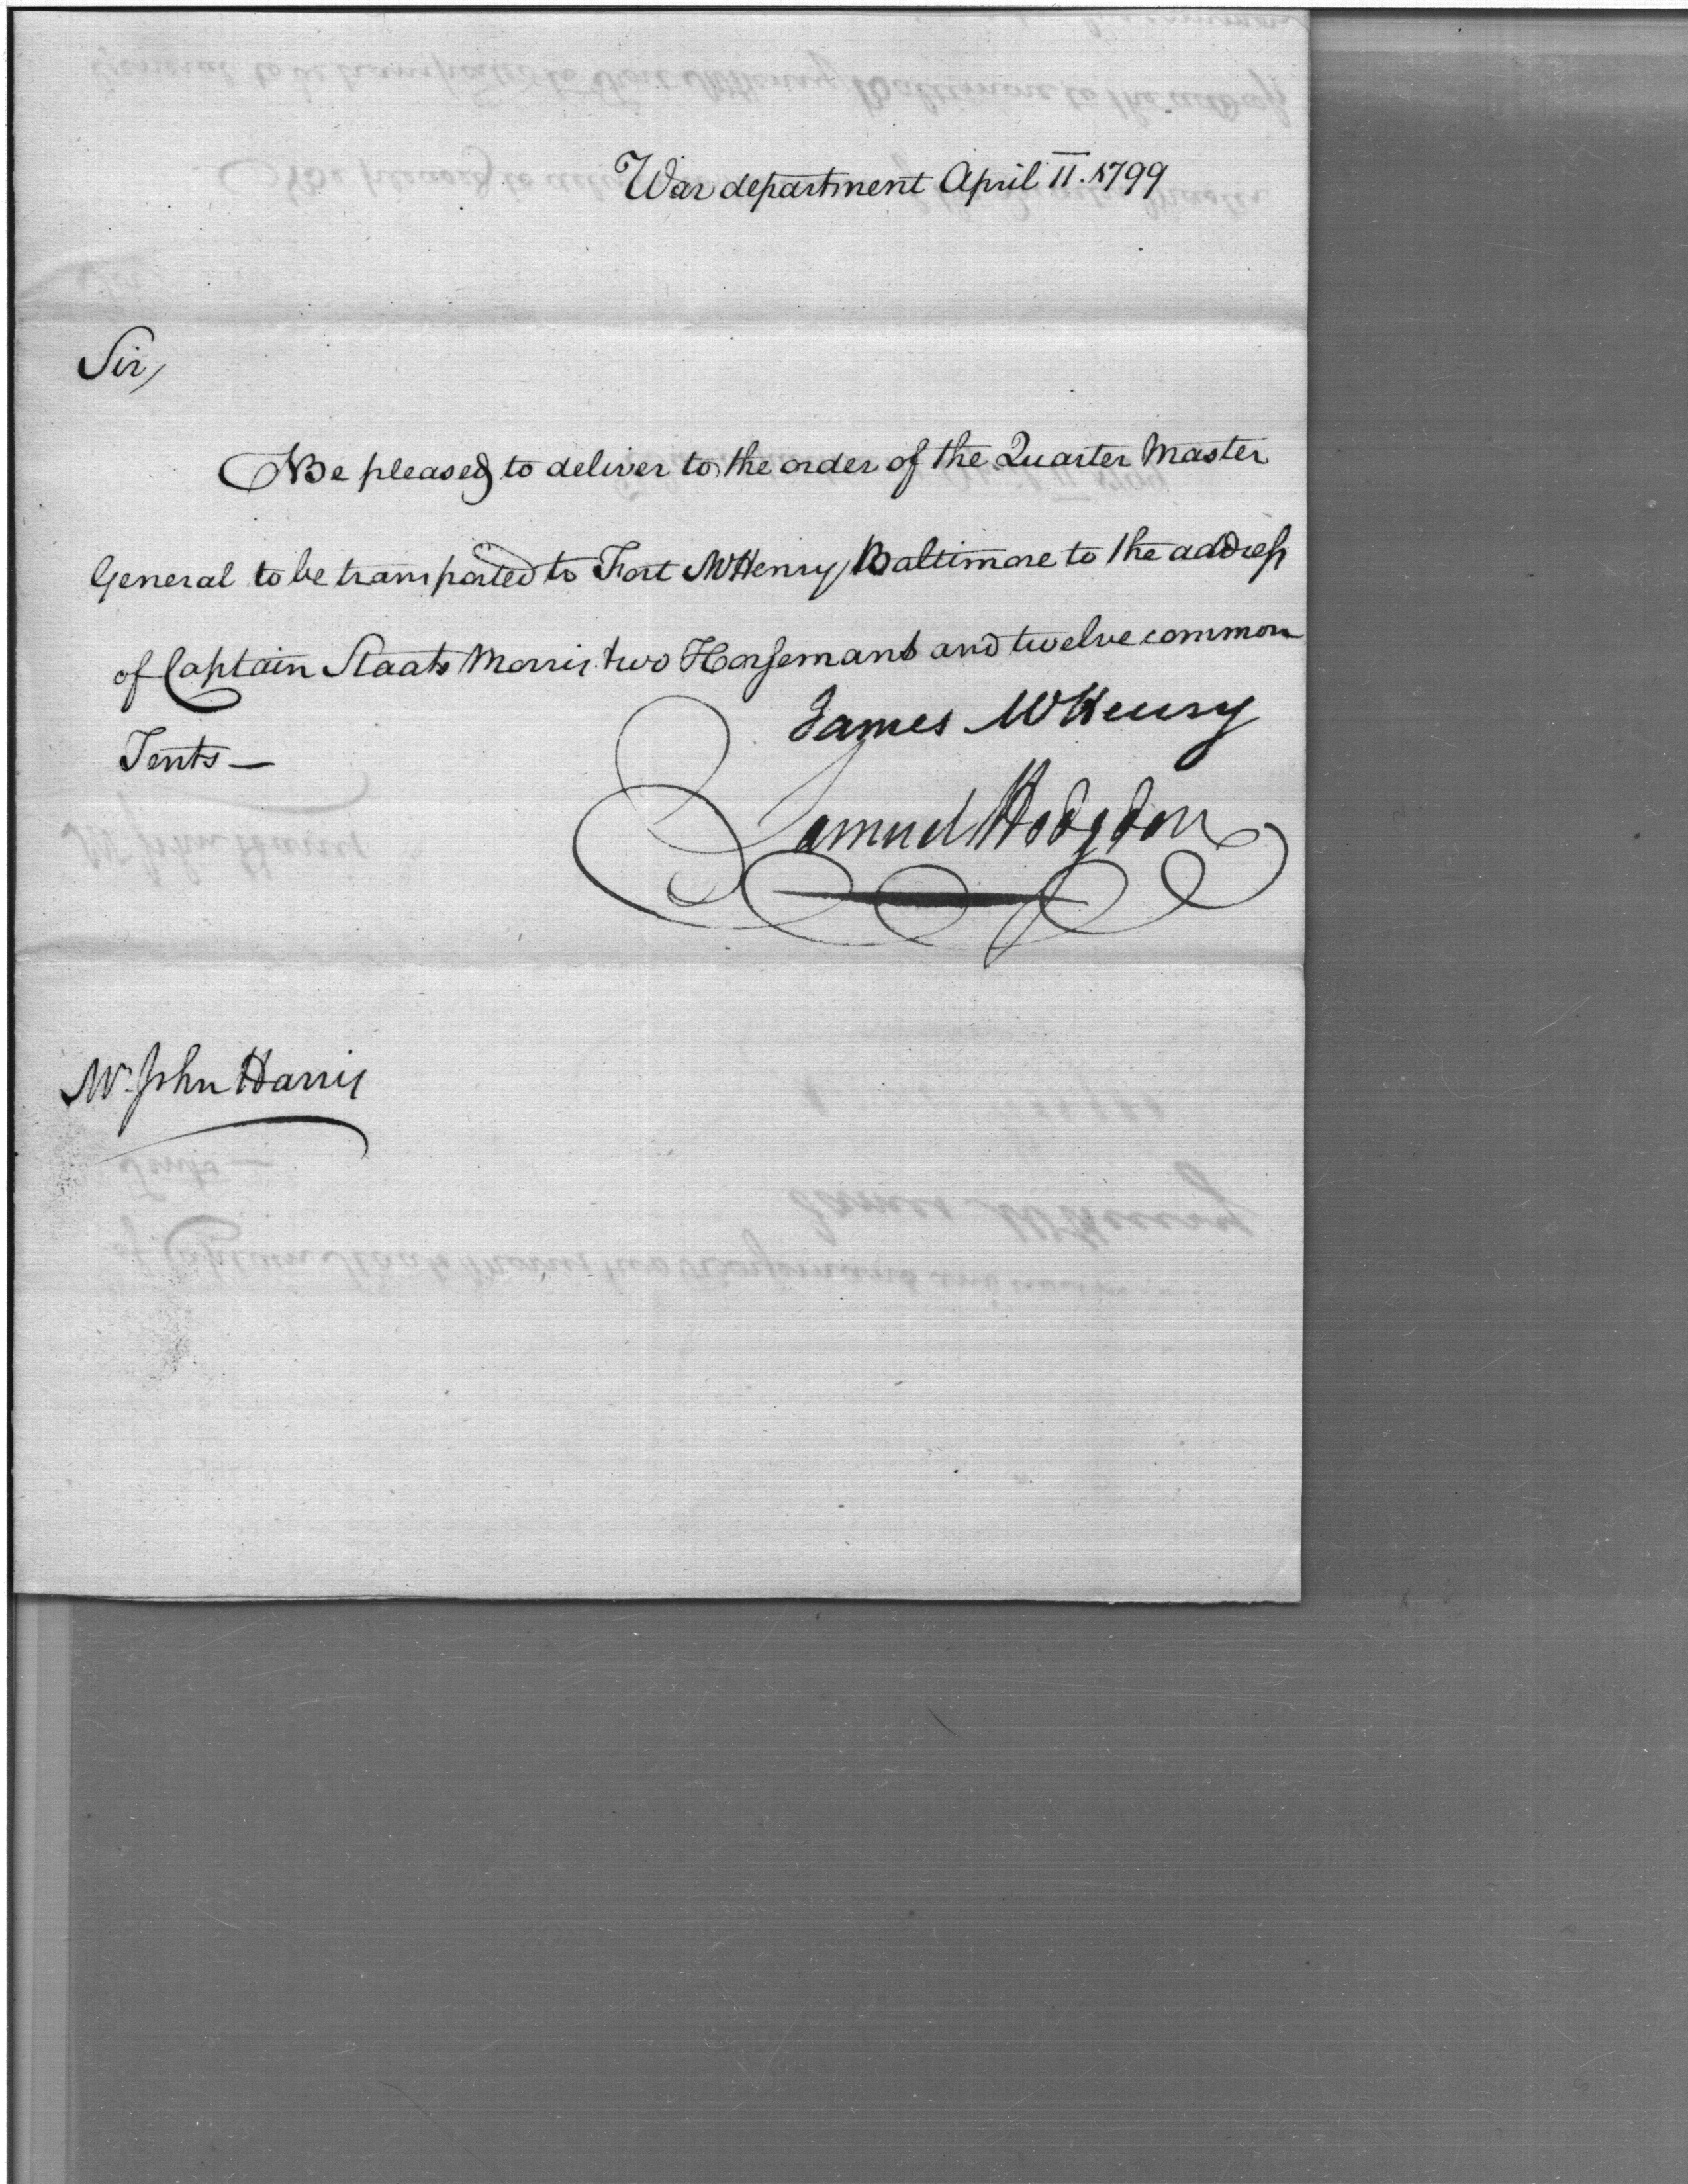 War department April 11. 1799
Sir,
Be pleased to deliver to the order of the Quarter Master
General to be transported to Fort McHenry Baltimore to the address
of Captain Staats Morris two Horsemans and twelve common
Tents—
James McHenry
Samuel Hodgdon
Mr. John Harris